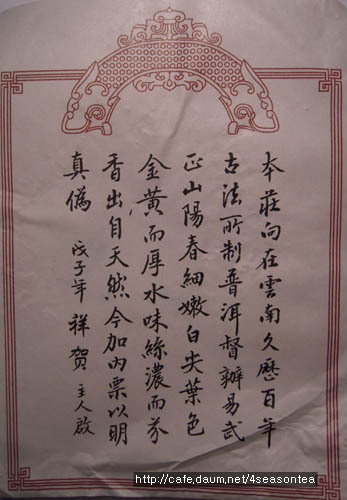 本莊向在雲南久歷百年
古法所制普洱督辦易武
正山陽春細嫩白尖葉色
金黃而厚水味絲濃而芬
香出自天然今加內票以明
真偽 戊子年 祥贺 主人啟
http://cafe.daum.net/4seasontea